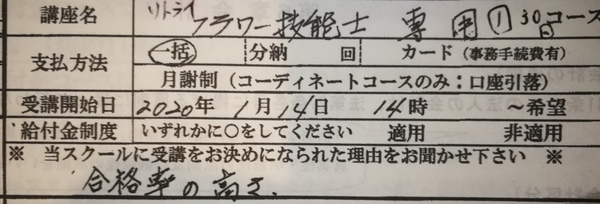 講座名 リトライ フラワー技能士 専用① 30日コース
支払方法 一括 分納 回 カード(事務手続費有)
月謝制(コーディネートコースのみ:口座引落)
受講開始日 2020年 1月 14日 14時 ～希望
給付金制度 いずれかに○をしてください 適用 非適用
※ 当スクールに受講をお決めになられた理由をお聞かせ下さい ※
合格率の高さ